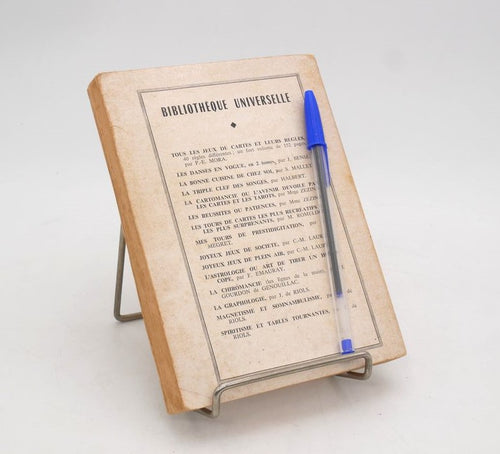 BIBLIOTHEQUE UNIVERSELLE
TOUS LES JEUX DE CARTES ET LEURS REGLES,
40 règles différentes, un fort volume de 112 pages
par P.-E. MORA.
LES DANSES EN VOGUE, en 2 tomes, par J.
LA BONNE CUISINE DE CHEZ SOI, par S. MALLEY
LA TRIPLE CLEF DES SONGES, par HALBERT.
LA CARTOMANCIE OU L'AVENIR DEVOILE PA
LES CARTES ET LES TAROTS, par Mme
LES REUSSITES OU PATIENCES, par Mme
LES TOURS DE CARTES LES PLUS RECREATIFS
LES PLUS SURPRENANTS, par M.
MES TOURS DE PRESTIDIGITATION, par
MEGRET.
JOYEUX JEUX DE SOCIETE, par C.-M. LAUR
JOYEUX JEUX DE PLEIN AIR, par C.-M. LAUR
L'ASTROLOGIE OU ART DE TIRER UN
COPE, par F. EMAURAY.
LA CHIROMANCIE (les lignes de la main),
GOURDON de GENOUILLAC.
LA GRAPHOLOGIE, par J. de RIOLS.
MAGNETISME ET SOMNAMBULISME, par
RIOLS.
SPIRITISME ET TABLES TOURNANTES,
RIOLS.